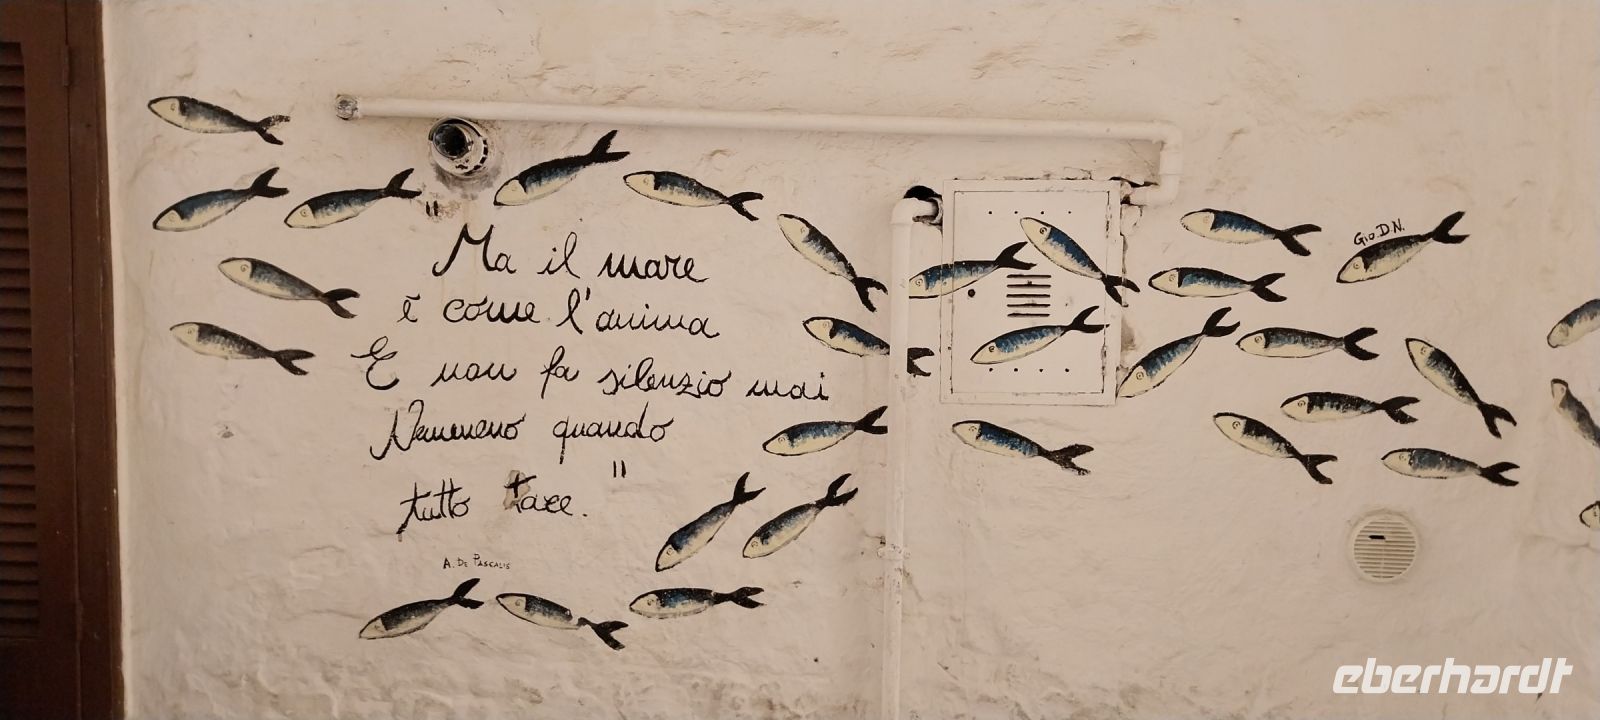 "Ma il mare
è come l'anima
E non fa silenzio mai
Nemmeno quando
tutto tace."
A. De Pascalis
Gio.D.N.
eberhardt